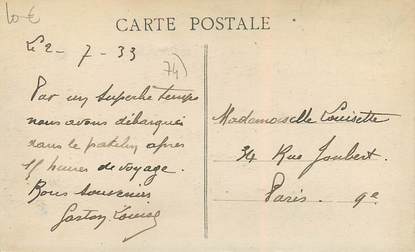 10 €
CARTE POSTALE
Le 2 - 7 - 33
74)
Par un superbe temps
nous avons débarqué
dans le patelin après
15 heures de voyage.
Bons Souvenirs
Gaston
Mademoiselle Louisette
34 Rue Joubert.
Paris. 9e